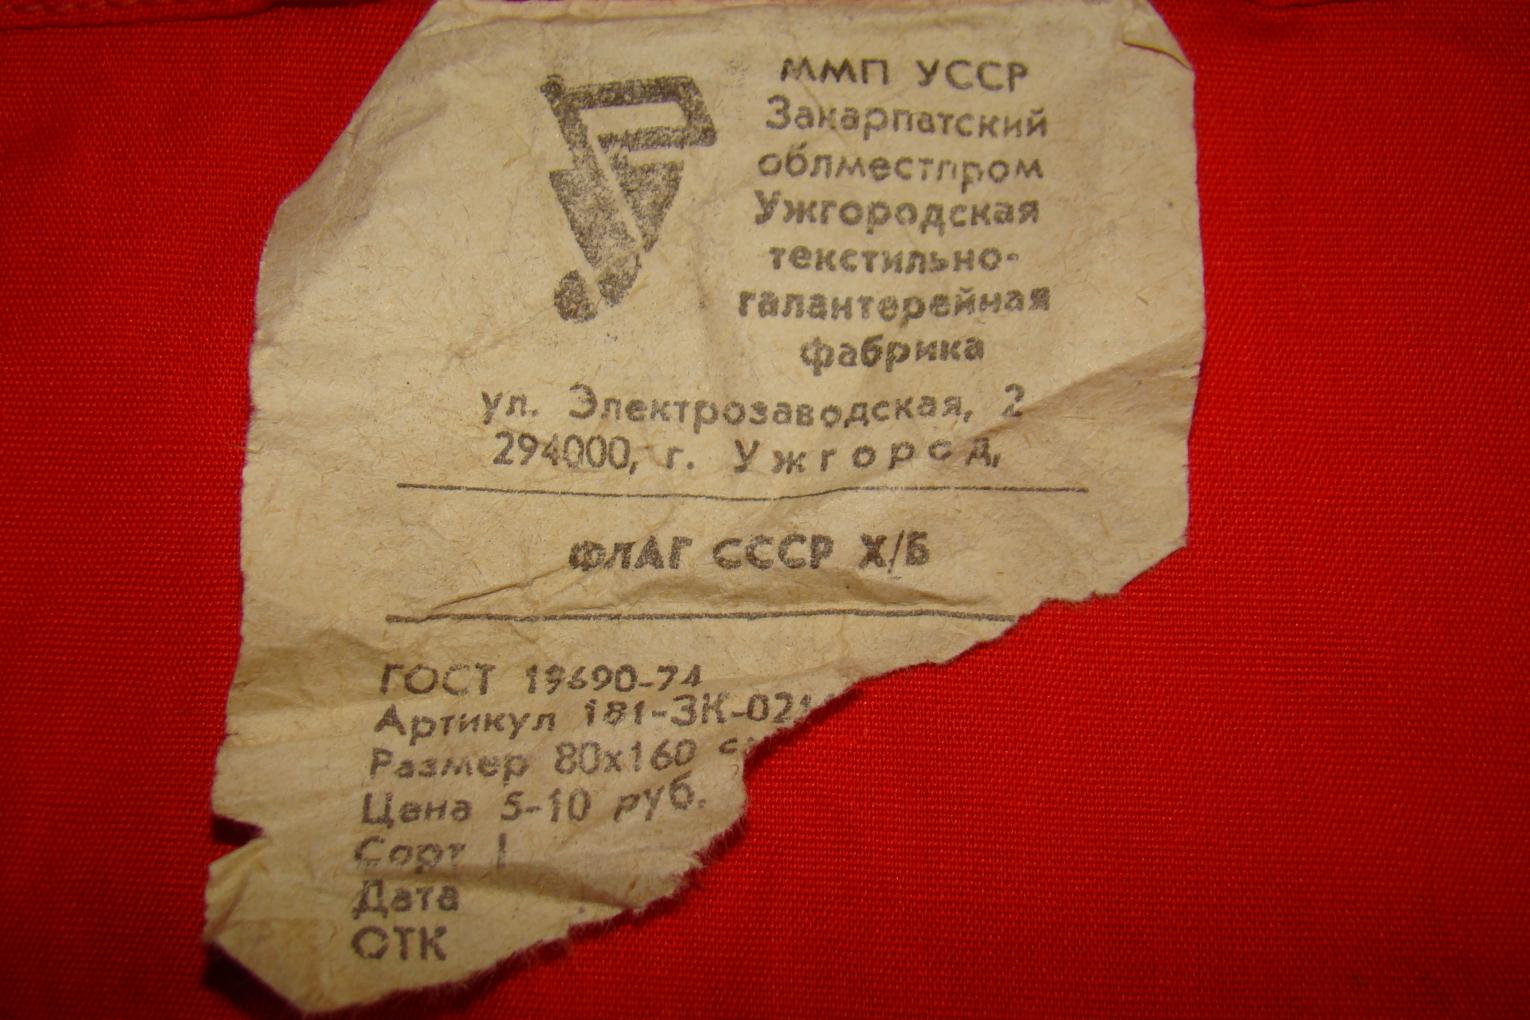 ММП УССР
Закарпатский
облместпром
Ужгородская
текстильно-
галантерейная
фабрика
ул. Электрозаводская, 2
294000, г. Ужгород,
ФЛАГ СССР Х/Б
ГОСТ 19690-74
Артикул
Размер 80х160
Цена 5-10 руб.
Сорт I
Дата
ОТК